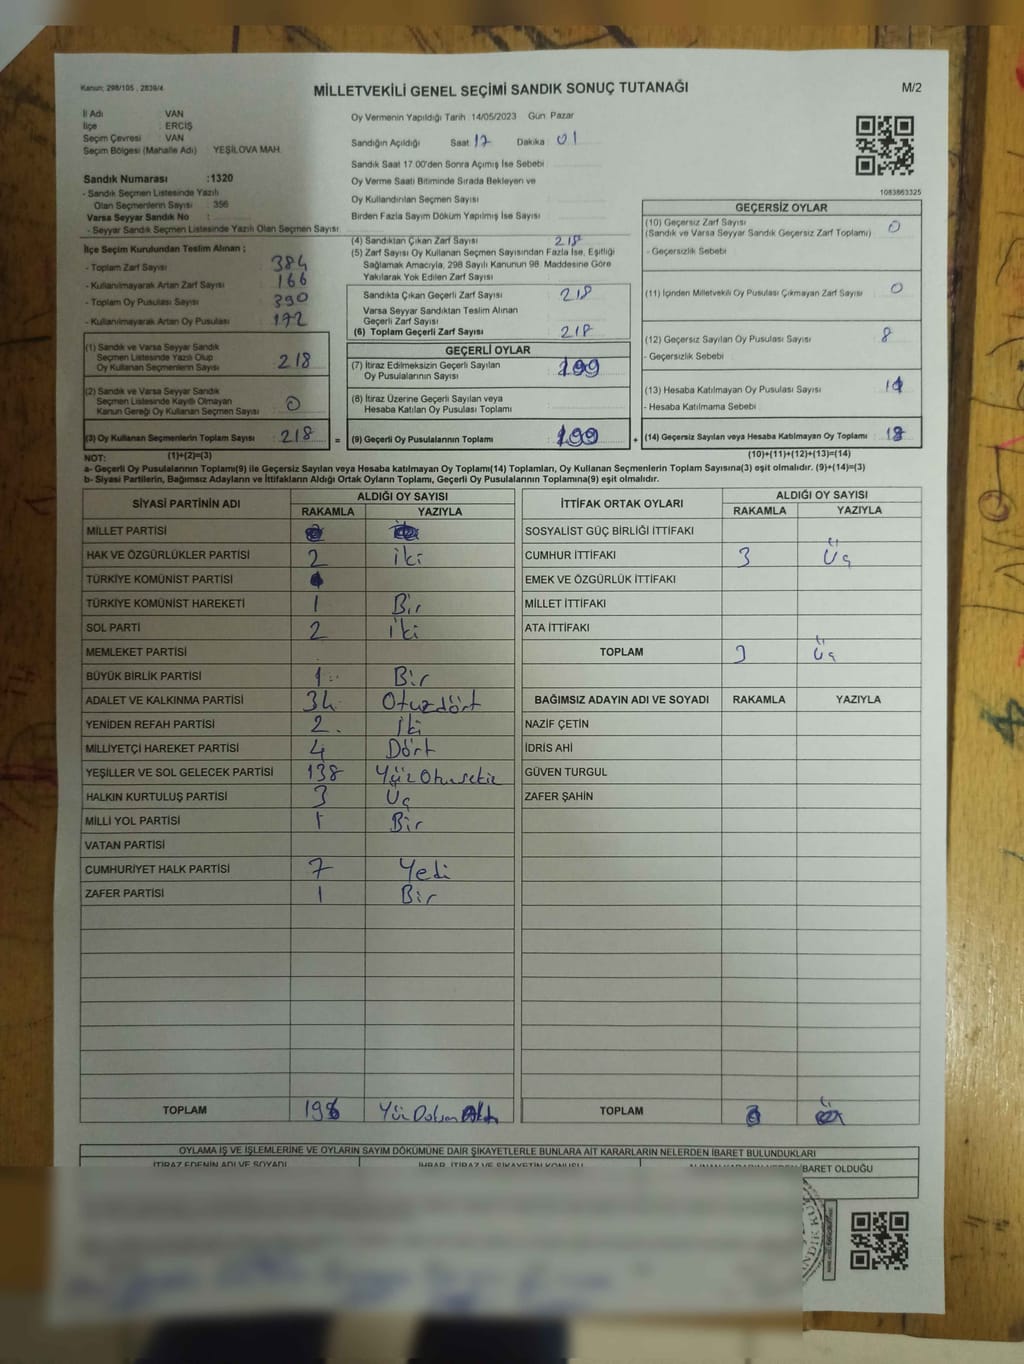 Kanun: 298/105 , 2839/4
MİLLETVEKİLİ GENEL SEÇİMİ SANDIK SONUÇ TUTANAĞI
M/2
İl Adı VAN
İlçe : ERCİŞ
Seçim Çevresi : VAN
Seçim Bölgesi (Mahalle Adı) : YEŞİLOVA MAH.
Sandık Numarası :1320
- Sandık Seçmen Listesinde Yazılı
Olan Seçmenlerin Sayısı : 356
Varsa Seyyar Sandık No :
- Seyyar Sandık Seçmen Listesinde Yazılı Olan Seçmen Sayısı
İlçe Seçim Kurulundan Teslim Alınan ;
- Toplam Zarf Sayısı 384
- Kullanılmayarak Artan Zarf Sayısı 166
- Toplam Oy Pusulası Sayısı 390
- Kullanılmayarak Artan Oy Pusulası 172
(1) Sandık ve Varsa Seyyar Sandık
Seçmen Listesinde Yazılı Olup
Oy Kullanan Seçmenlerin Sayısı : 218
(2) Sandık ve Varsa Seyyar Sandık
Seçmen Listesinde Kayıtlı Olmayan
Kanun Gereği Oy Kullanan Seçmen Sayısı 0
(3) Oy Kullanan Seçmenlerin Toplam Sayısı : 218
(1)+(2)=(3)
Oy Vermenin Yapıldığı Tarih 14/05/2023 Gün: Pazar
Sandığın Açıldığı Saat 17 Dakika 01
Sandık Saat 17.00'den Sonra Açımış İse Sebebi
Oy Verme Saati Bitiminde Sırada Bekleyen ve
Oy Kullandırılan Seçmen Sayısı
Birden Fazla Sayım Döküm Yapılmış İse Sayısı
(4) Sandıktan Çıkan Zarf Sayısı 218
(5) Zarf Sayısı Oy Kullanan Seçmen Sayısından Fazla İse, Eşitliği
Sağlamak Amacıyla, 298 Sayılı Kanunun 98. Maddesine Göre
Yakılarak Yok Edilen Zarf Sayısı
Sandıkta Çıkan Geçerli Zarf Sayısı : 218
Varsa Seyyar Sandıktan Teslim Alınan
Geçerli Zarf Sayısı
(6) Toplam Geçerli Zarf Sayısı : 218
GEÇERLİ OYLAR
(7) İtiraz Edilmeksizin Geçerli Sayılan
Oy Pusulalarının Sayısı : 199
(8) İtiraz Üzerine Geçerli Sayılan veya
Hesaba Katılan Oy Pusulası Toplamı
= (9) Geçerli Oy Pusulalarının Toplamı : 199 +
1083863325
GEÇERSİZ OYLAR
(10) Geçersiz Zarf Sayısı
(Sandık ve Varsa Seyyar Sandık Geçersiz Zarf Toplamı) : 0
- Geçersizlik Sebebi
(11) İçinden Milletvekili Oy Pusulası Çıkmayan Zarf Sayısı : 0
(12) Geçersiz Sayılan Oy Pusulası Sayısı : 8
- Geçersizlik Sebebi
(13) Hesaba Katılmayan Oy Pusulası Sayısı
- Hesaba Katılmama Sebebi
(14) Geçersiz Sayılan veya Hesaba Katılmayan Oy Toplamı
(10)+(11)+(12)+(13)=(14)
NOT:
a- Geçerli Oy Pusulalarının Toplamı(9) ile Geçersiz Sayılan veya Hesaba katılmayan Oy Toplamı(14) Toplamları, Oy Kullanan Seçmenlerin Toplam Sayısına(3) eşit olmalıdır. (9)+(14)=(3)
b- Siyasi Partilerin, Bağımsız Adayların ve İttifakların Aldığı Ortak Oyların Toplamı, Geçerli Oy Pusulalarının Toplamına(9) eşit olmalıdır.
SİYASİ PARTİNİN ADI ALDIĞI OY SAYISI
RAKAMLA YAZIYLA
MİLLET PARTİSİ
HAK VE ÖZGÜRLÜKLER PARTİSİ 2 iki
TÜRKİYE KOMÜNİST PARTİSİ
TÜRKİYE KOMÜNİST HAREKETİ 1 Bir
SOL PARTİ 2 iki
MEMLEKET PARTİSİ
BÜYÜK BİRLİK PARTİSİ 1 Bir
ADALET VE KALKINMA PARTİSİ 34 Otuzdört
YENİDEN REFAH PARTİSİ 2 İki
MİLLİYETÇİ HAREKET PARTİSİ 4 Dört
YEŞİLLER VE SOL GELECEK PARTİSİ 138 Yüz Otuzsekiz
HALKIN KURTULUŞ PARTİSİ 3 Üç
MİLLİ YOL PARTİSİ 1 Bir
VATAN PARTİSİ
CUMHURİYET HALK PARTİSİ 7 Yedi
ZAFER PARTİSİ 1 Bir
TOPLAM 196 Yüz Doksan Altı
İTTİFAK ORTAK OYLARI ALDIĞI OY SAYISI
RAKAMLA YAZIYLA
SOSYALİST GÜÇ BİRLİĞİ İTTİFAKI
CUMHUR İTTİFAKI 3 Üç
EMEK VE ÖZGÜRLÜK İTTİFAKI
MİLLET İTTİFAKI
ATA İTTİFAKI
TOPLAM 3 Üç
BAĞIMSIZ ADAYIN ADI VE SOYADI RAKAMLA YAZIYLA
NAZİF ÇETİN
İDRİS AHİ
GÜVEN TURGUL
ZAFER ŞAHİN
TOPLAM
OYLAMA İŞ VE İŞLEMLERİNE VE OYLARIN SAYIM DÖKÜMÜNE DAİR ŞİKAYETLERLE BUNLARA AİT KARARLARIN NELERDEN İBARET BULUNDUKLARI
İTİRAZ EDENİN ADI VE SOYADI İHBAR, İTİRAZ VE ŞİKAYETİN KONUSU İBARET OLDUĞU